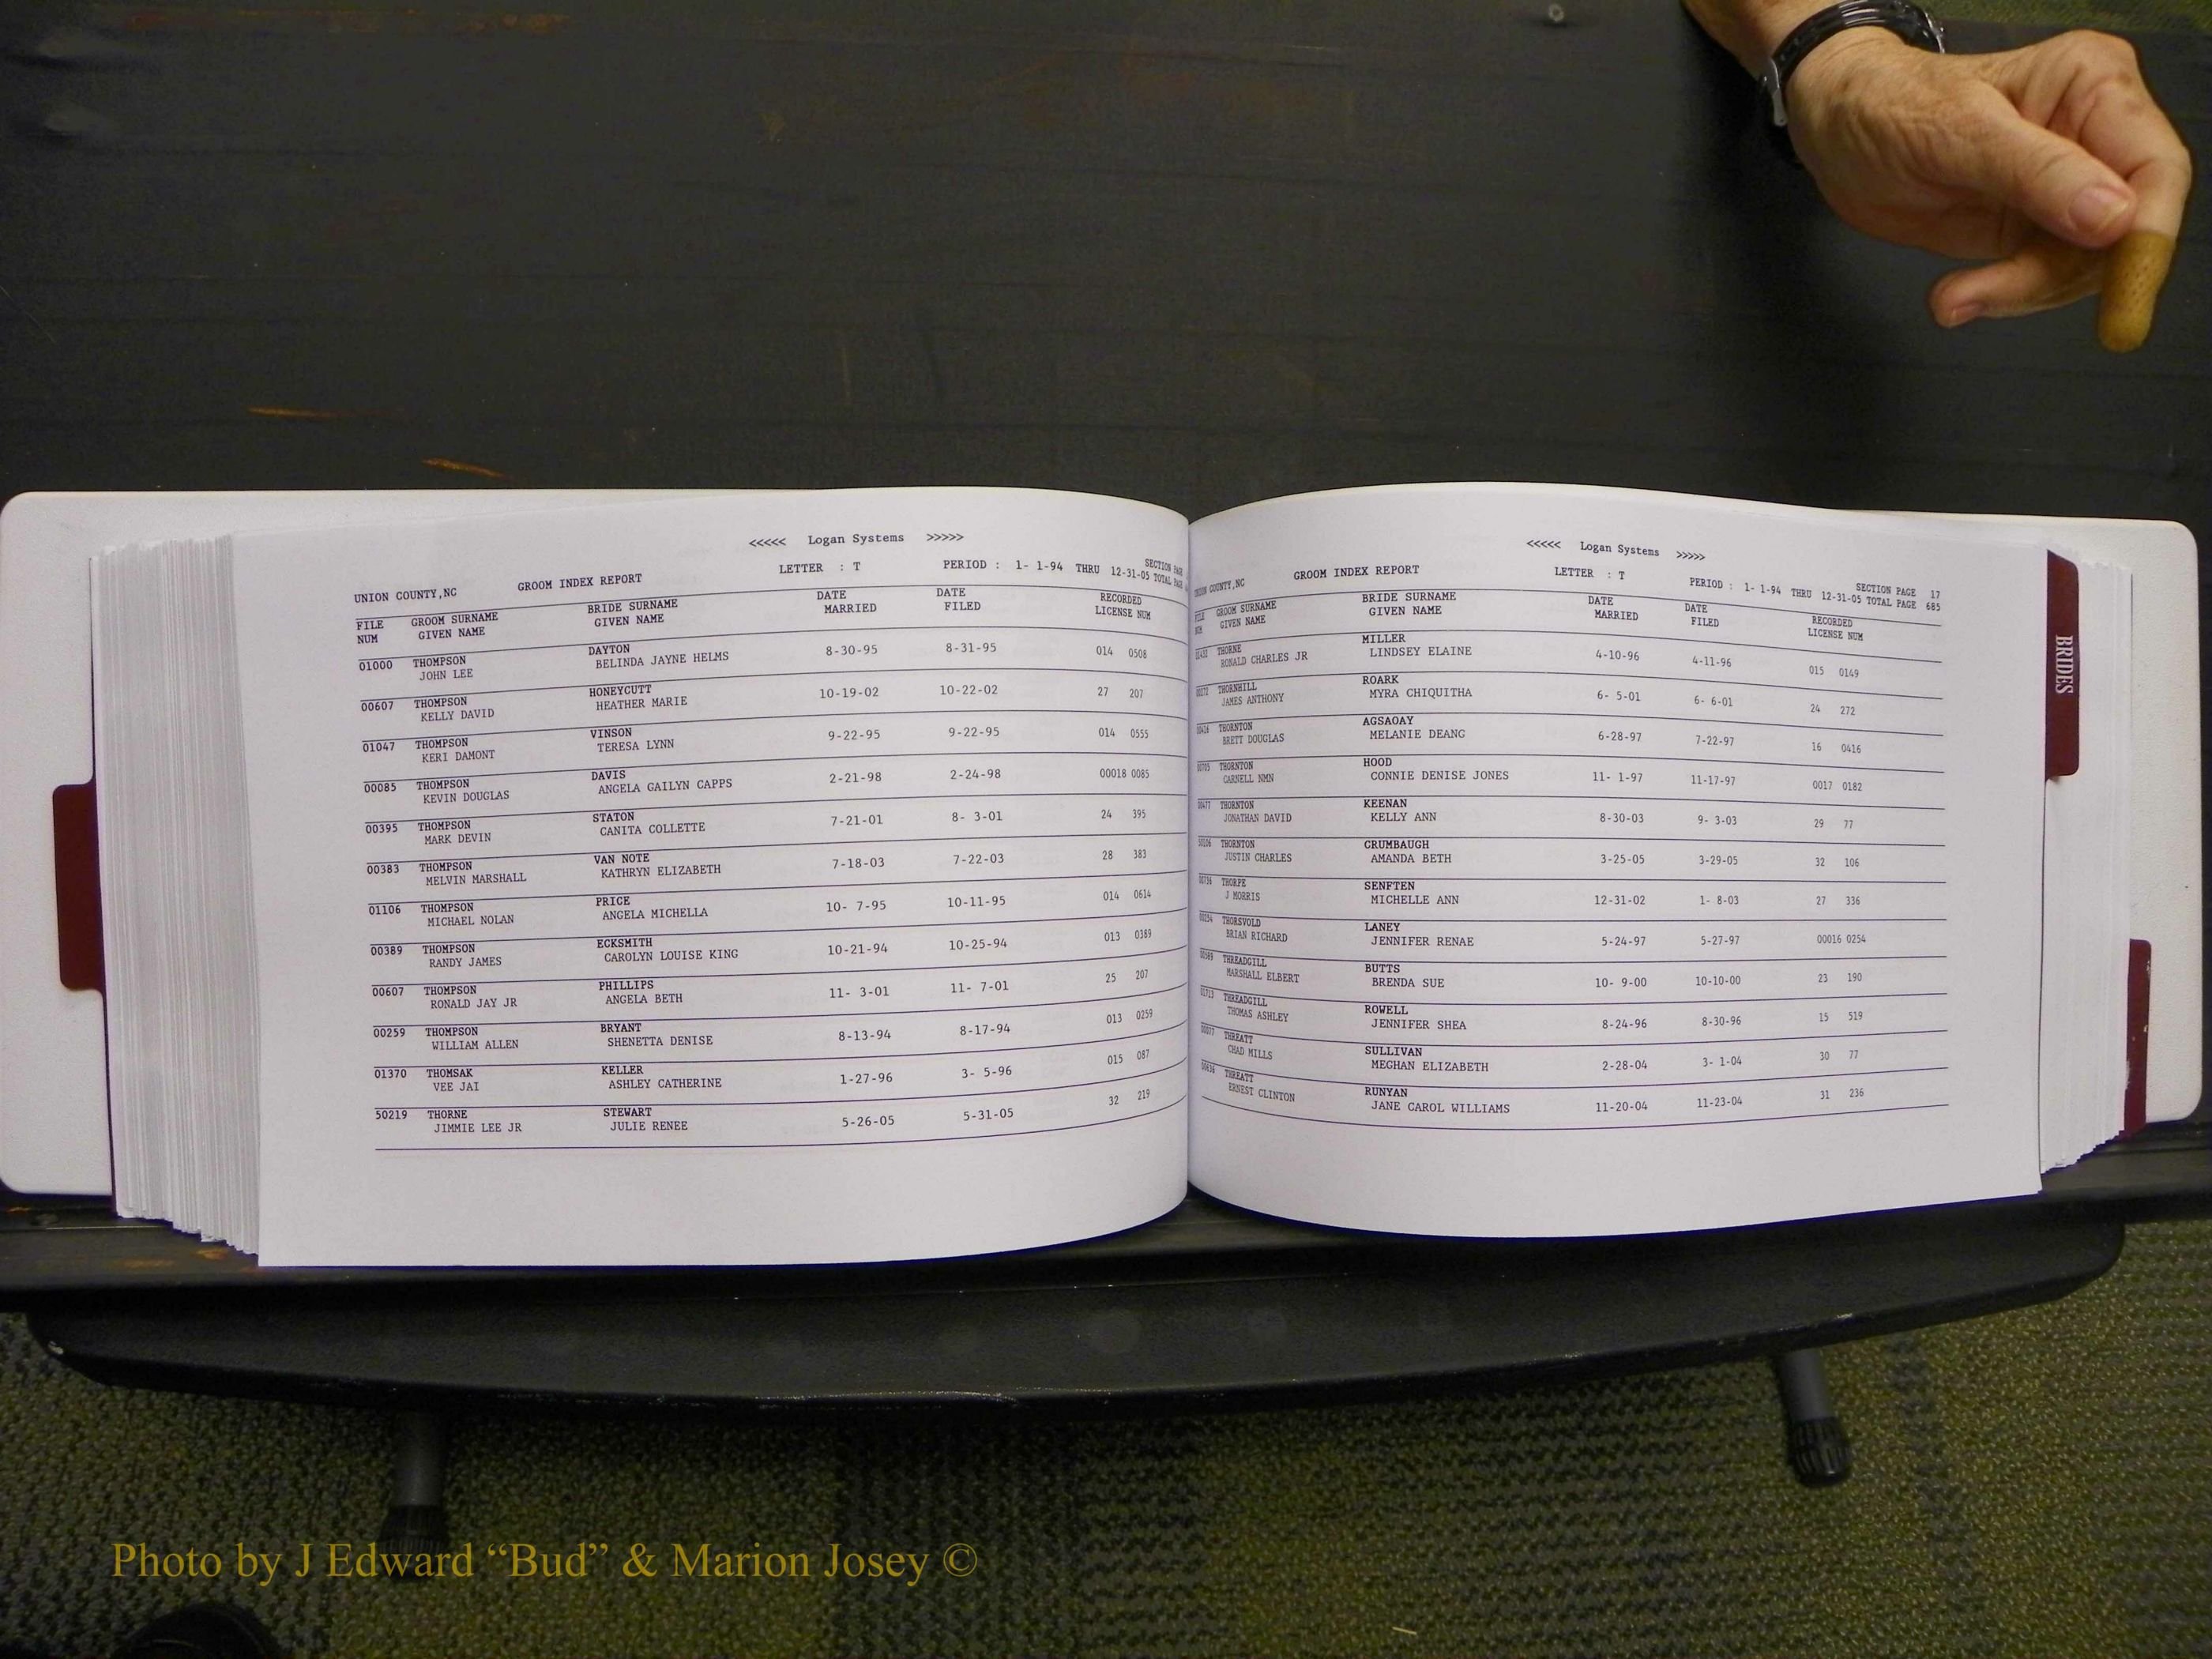 <<<<< Logan Systems >>>>>
UNION COUNTY,NC GROOM INDEX REPORT LETTER : T PERIOD : 1- 1-94 THRU 12-31-05 SECTION PAGE
TOTAL PAGE
FILE NUM GROOM SURNAME GIVEN NAME BRIDE SURNAME GIVEN NAME DATE MARRIED DATE FILED RECORDED LICENSE NUM
01000 THOMPSON DAYTON 8-30-95 8-31-95 014 0508
JOHN LEE BELINDA JAYNE HELMS
00607 THOMPSON HONEYCUTT 10-19-02 10-22-02 27 207
KELLY DAVID HEATHER MARIE
01047 THOMPSON VINSON 9-22-95 9-22-95 014 0555
KERI DAMONT TERESA LYNN
00085 THOMPSON DAVIS 2-21-98 2-24-98 00018 0085
KEVIN DOUGLAS ANGELA GAILYN CAPPS
00395 THOMPSON STATON 7-21-01 8- 3-01 24 395
MARK DEVIN CANITA COLLETTE
00383 THOMPSON VAN NOTE 7-18-03 7-22-03 28 383
MELVIN MARSHALL KATHRYN ELIZABETH
01106 THOMPSON PRICE 10- 7-95 10-11-95 014 0614
MICHAEL NOLAN ANGELA MICHELLA
00389 THOMPSON ECKSMITH 10-21-94 10-25-94 013 0389
RANDY JAMES CAROLYN LOUISE KING
00607 THOMPSON PHILLIPS 11- 3-01 11- 7-01 25 207
RONALD JAY JR ANGELA BETH
00259 THOMPSON BRYANT 8-13-94 8-17-94 013 0259
WILLIAM ALLEN SHENETTA DENISE
01370 THOMSAK KELLER 1-27-96 3- 5-96 015 087
VEE JAI ASHLEY CATHERINE
50219 THORNE STEWART 5-26-05 5-31-05 32 219
JIMMIE LEE JR JULIE RENEE
<<<<< Logan Systems >>>>>
UNION COUNTY,NC GROOM INDEX REPORT LETTER : T PERIOD : 1- 1-94 THRU 12-31-05 SECTION PAGE 17
TOTAL PAGE 685
FILE NUM GROOM SURNAME GIVEN NAME BRIDE SURNAME GIVEN NAME DATE MARRIED DATE FILED RECORDED LICENSE NUM
THORNE MILLER 4-10-96 4-11-96 015 0149
RONALD CHARLES JR LINDSEY ELAINE
THORNHILL ROARK 6- 5-01 6- 6-01 24 272
JAMES ANTHONY MYRA CHIQUITHA
THORNTON AGSAOAY 6-28-97 7-22-97 16 0416
BRETT DOUGLAS MELANIE DEANG
THORNTON HOOD 11- 1-97 11-17-97 0017 0182
CARNELL NMN CONNIE DENISE JONES
THORNTON KEENAN 8-30-03 9- 3-03 29 77
JONATHAN DAVID KELLY ANN
THORNTON CRUMBAUGH 3-25-05 3-29-05 32 106
JUSTIN CHARLES AMANDA BETH
THORPE SENFTEN 12-31-02 1- 8-03 27 336
J MORRIS MICHELLE ANN
THORSVOLD LANEY 5-24-97 5-27-97 00016 0254
BRIAN RICHARD JENNIFER RENAE
THREADGILL BUTTS 10- 9-00 10-10-00 23 190
MARSHALL ELBERT BRENDA SUE
THREADGILL ROWELL 8-24-96 8-30-96 15 519
THOMAS ASHLEY JENNIFER SHEA
THREATT SULLIVAN 2-28-04 3- 1-04 30 77
CHAD MILLS MEGHAN ELIZABETH
THREATT RUNYAN 11-20-04 11-23-04 31 236
ERNEST CLINTON JANE CAROL WILLIAMS
BRIDES
Photo by J Edward “Bud” & Marion Josey ©